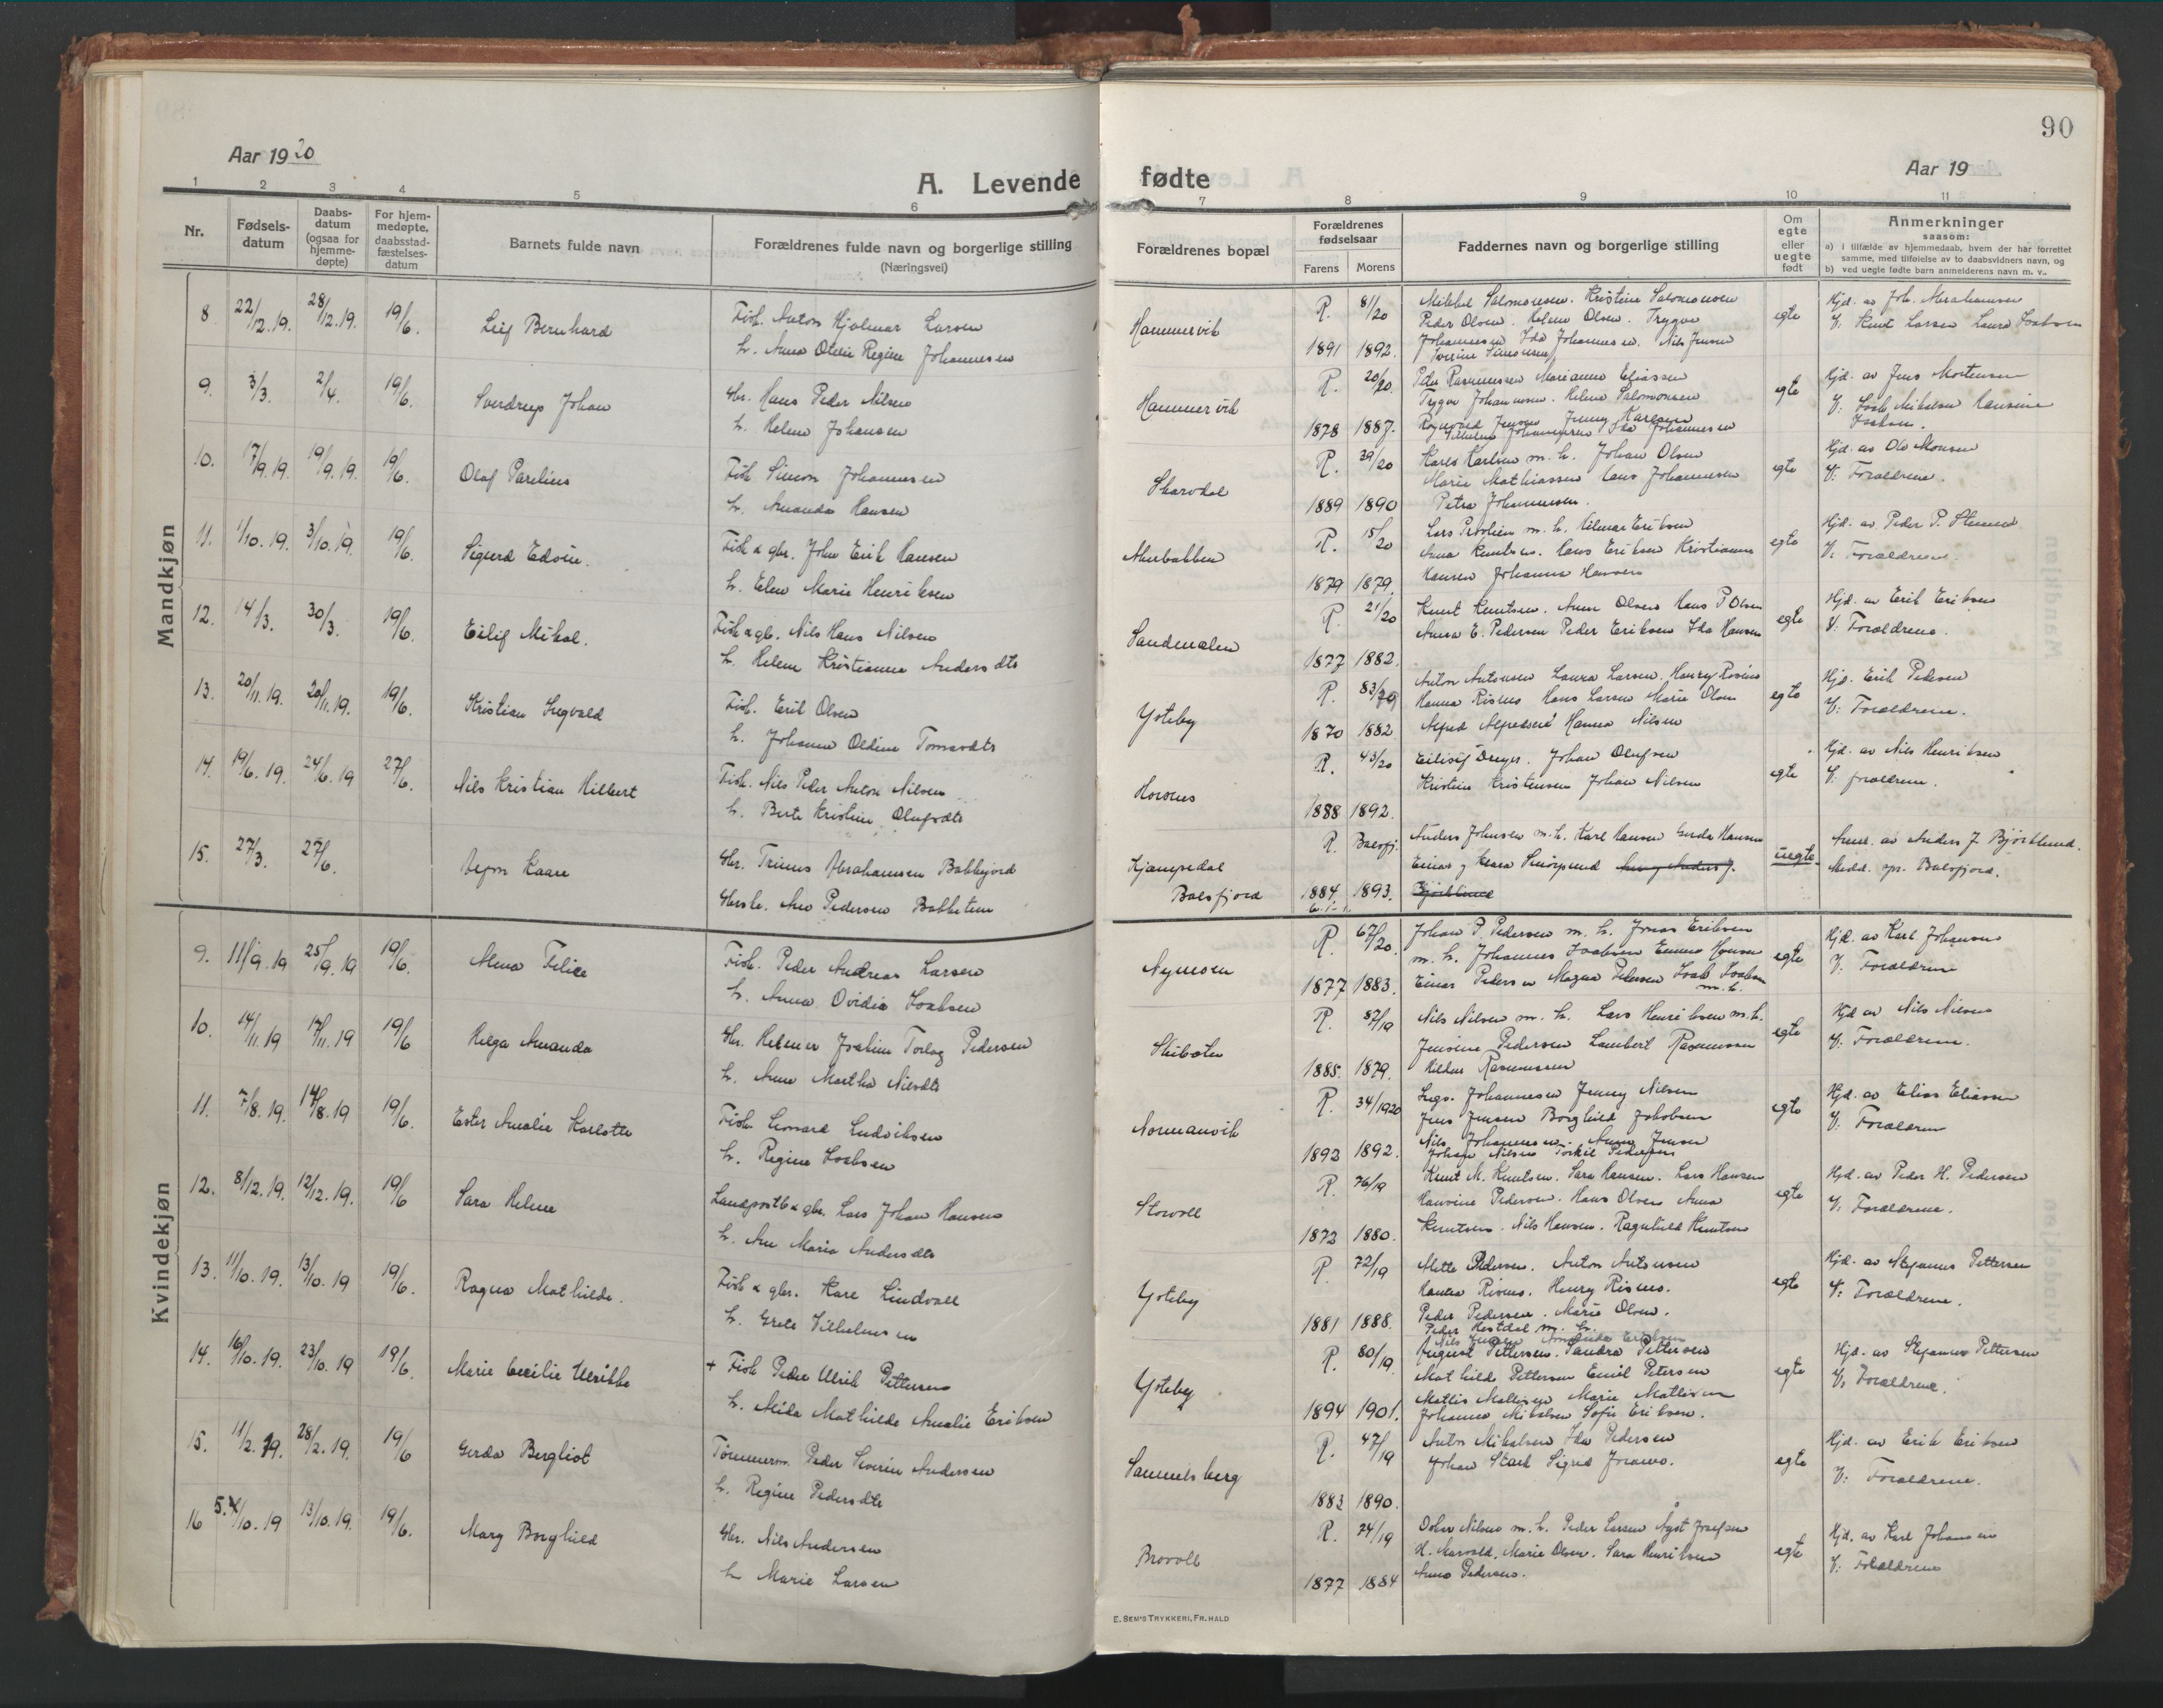 90
Aar 1920
Aar 19
A. Levende fødte
1 2 3 4 5 6 7 8 9 10 11
Nr.
Fødsels-
datum
Daabs-
datum
(ogsaa for
hjemme-
døpte)
For hjem-
medøpte,
daabsstad-
fæstelses-
datum
Barnets fulde navn
Forældrenes fulde navn og borgerlige stilling
(Næringsvei)
Forældrenes bopæl
Forældrenes
fødselsaar
Farens Morens
Faddernes navn og borgerlige stilling
Om
egte
eller
uegte
født
Anmerkninger
saasom:
a) i tilfælde av hjemmedaab, hvem der har forrettet
samme, med tilføielse av to daabsvidners navn, og
b) ved uegte fødte barn anmelderens navn m. v..
Mandkjøn
8. 22/12.19. 28/12.19. 19/6. Leif Bernhard
Fisk. Anton Hjalmar Larsen
h. Anna Otelie Regine Johannesen
Hammervik
R. 81/20
1891 1892.
Mikkel Salomonsen. Kristine Salomonsen
Peder Olsen. Helene Olsen. Trygve
Johannesen Ida Johannesen. Nils Jensen
Severine Simonsen
egte
Hjd. av Joh. Abrahamsen
V: Knut Larsen Laura Isaksen
9. 3/3. 2/4. 19/6. Sverdrup Johan
Gbr. Hans Peder Nilsen
h. Helene Johansen
Hammervik
R. 20/20.
1878 1887.
Peder Rasmussen Marianne Eliassen
Trygve Johannesen. Helene Salomonsen
Ragnvald Jensen Jenny Karlsen
Johannesen Ida Johannesen
egte
Hjd. av Jens Mortensen
V: Isak Mikalsen Hansine
Isaksen.
10. 17/9.19. 19/9.19. 19/6. Olaf Parelius
Fisk Simon Johannesen
h. Amanda Hansen
Skarvdal
R. 39/20
1889 1890
Karls Karlsen m. h. Johan Olsen
Marie Mathiassen Hans Johannesen
Petra Johannesen.
egte
Hjd. av Ole Monsen
V: Forældrene.
11. 1/10.19. 3/10.19. 19/6. Sigurd Edvin.
Fisk & gbr. John Erik Hansen
h. Elen Marie Henriksen
R. 15/20
1879 1879.
Lars m. h. Hilmar Eriksen
Anna Knutsen. Hans Eriksen Kristianne
Hansen Johanna Hansen
egte
Hjd. av Peder P.
V: Forældrene.
12. 14/3. 30/3. 19/6. Eilif Mikal.
Fisk & gb. Nils Hans Nilsen
h. Helene Kristianna Andersdtr
Sandmælen
R. 21/20
1877 1882.
Knut Knutsen. Anne Olsen Hans P Olsen
Anna E. Pedersen Peder Eriksen Ida Hansen
egte
Hjd. av Erik Eriksen
V: Forældrene.
13. 20/11.19. 20/11.19. 19/6. Kristian Ingvald
Fisk. Eril Olsen
h. Johanna Oldine Tomasdtr
Yoteby
R. 83/19
1870 1882
Anton Antonsen Laura Larsen. Henry Risnes
Hanna Risnes Hans Larsen Marie Olsen
Alfred Alfredsen Hanna Nilsen
egte
Hjd. Erik Pedersen
V: Forældrene.
14. 19/6.19. 24/6.19 27/6. Nils Kristian Hilbert
Fisk. Nils Peder Anton Nilsen
h. Berte Kristine Olufsdtr
Horsnes
R. 43/20
1888 1892.
Eilivif Dreyer. Johan Olufsen
Kristine Kristensen Johan Nilsen
egte
Hjd. av Nils Henriksen
V: forældrene.
15. 27/3. 27/6. Kaare
Gbr. Trinus Abrahamsen Bakkejord
Gbrsk. Ane Pedersen Bakketun
Kjempedal
Balsfjord
R. Balsfj.
1884 1893.
Anders Johnsen m. h. Karl Hansen Gerda Hansen
Einar og Klara Anders J.
Bjørklund
uegte.
Anm. av Anders J. Bjørklund.
Medd. spr. Balsfjord.
Kvindekjøn
9. 11/9.19 25/9.19 19/6. Alma Felice
Fisk. Peder Andreas Larsen
h. Anna Ovidia Isaksen
Nymoen
R 67/20.
1877 1883.
Johan P. Pedersen m. h. Jonas Eriksen
m. h. Johannes Isaksen Emma Hansen
Einar Pedersen Magna Pedersen Isak Isaksen
m. h.
egte
Hjd. av Karl Johansen
V: Forældrene
10. 14/11.19 17/11.19 19/6 Helga Amanda
Gbr. Helmer Joakim Torlag Pedersen
h. Anna Martha Nilsdtr
Skibotn
R. 87/19
1885. 1879.
Nils Nilsen m. h. Lars Henriksen m. h.
Jensine Pedersen Lambert Rasmussen
Hildur Rasmussen
egte
Hjd av Nils Nilsen
V: Forældrene.
11. 7/8.19. 14/8.19 19/6. Ester Amalie Karlotte
Fisk Leonard Ludviksen
h. Regine Isaksen
Normanvik
R. 34/1920
1892 1892.
Inga. Johannesen Jenny Nilsen
Jens Jensen Borghild Jakobsen
Nils Johannesen. Anna Jensen
Johan Nilsen Torkil Pedersen
egte
Hjd. av Elias Eliassen
V: Forældrene
12. 8/12.19. 12/12.19. 19/6 Sara Helene
Landpostb & gbr. Lars Johan Hansen
h. Ane Maria Andersdtr
Storvoll
R. 76/19
1872 1880.
Knut M. Knutsen. Sara Hansen. Lars Hansen
Hansine Pedersen. Hans Olsen Anna
Knutsen. Nils Hansen. Ragnhild Knutsen
egte
Hjd. av Peder H. Pedersen
V, Forældrene.
13. 11/10.19. 13/10.19 19/6. Ragna Mathilde.
Fisk & gbr. Karl Lindvall
h. Grete Vilhelmsen
Yoteby
R. 72/19
1881 1888.
Mette Pedersen. Anton Antonsen
Hanna Risnes. Henry Risnes.
Peder Pedersen. Marie Olsen.
Peder Hestdal m. h.
egte
Hjd. av Stefanus Pettersen
V: Forældrene.
14. 16/10.19. 23/10.19 19/6. Marie Cecilie Ulrikke
+ Fisk Peder Ulrik Pettersen
h. Alida Mathilde Amalie Eriksen
Yoteby
R. 80/19
1894 1901.
Nils Jensen Eriksen
August Pettersen. Sandra Pettersen
Mathilde Pettersen Emil Petersen
Mattis Mattisen Marie Mattisen
Johanna Mikalsen Sofie Eriksen.
egte
Hjd. av Stefanus Pettersen
V, Forældrene.
15. 11/2.19. 28/2.19. 19/6 Gerda Bergliot
Tømmerm. Peder Severin Andersen
h. Regine Pedersdtr
Samuelsberg
R. 47/19
1883 1890.
Anton Mikalsen Ida Pedersen
Johan Stark Sigrid
egte
Hjd. av Erik Eriksen
V: Forældrene.
16 5./10.19 13/10.19. 19/6. Mary Borghild
Gbr. Nils Andersen
h Marie Larsen
Brovoll
R. 74/19
1877 1884
Oskar Nilsen m. h. Peder Larsen Ågot Josefsen
H. Marvold, Marie Olsen. Sara Henriksen
Anna Pedersen.
egte
Hjd. av Karl Johansen
V: Forældrene
E. SEM'S TRYKKERI, FR. HALD